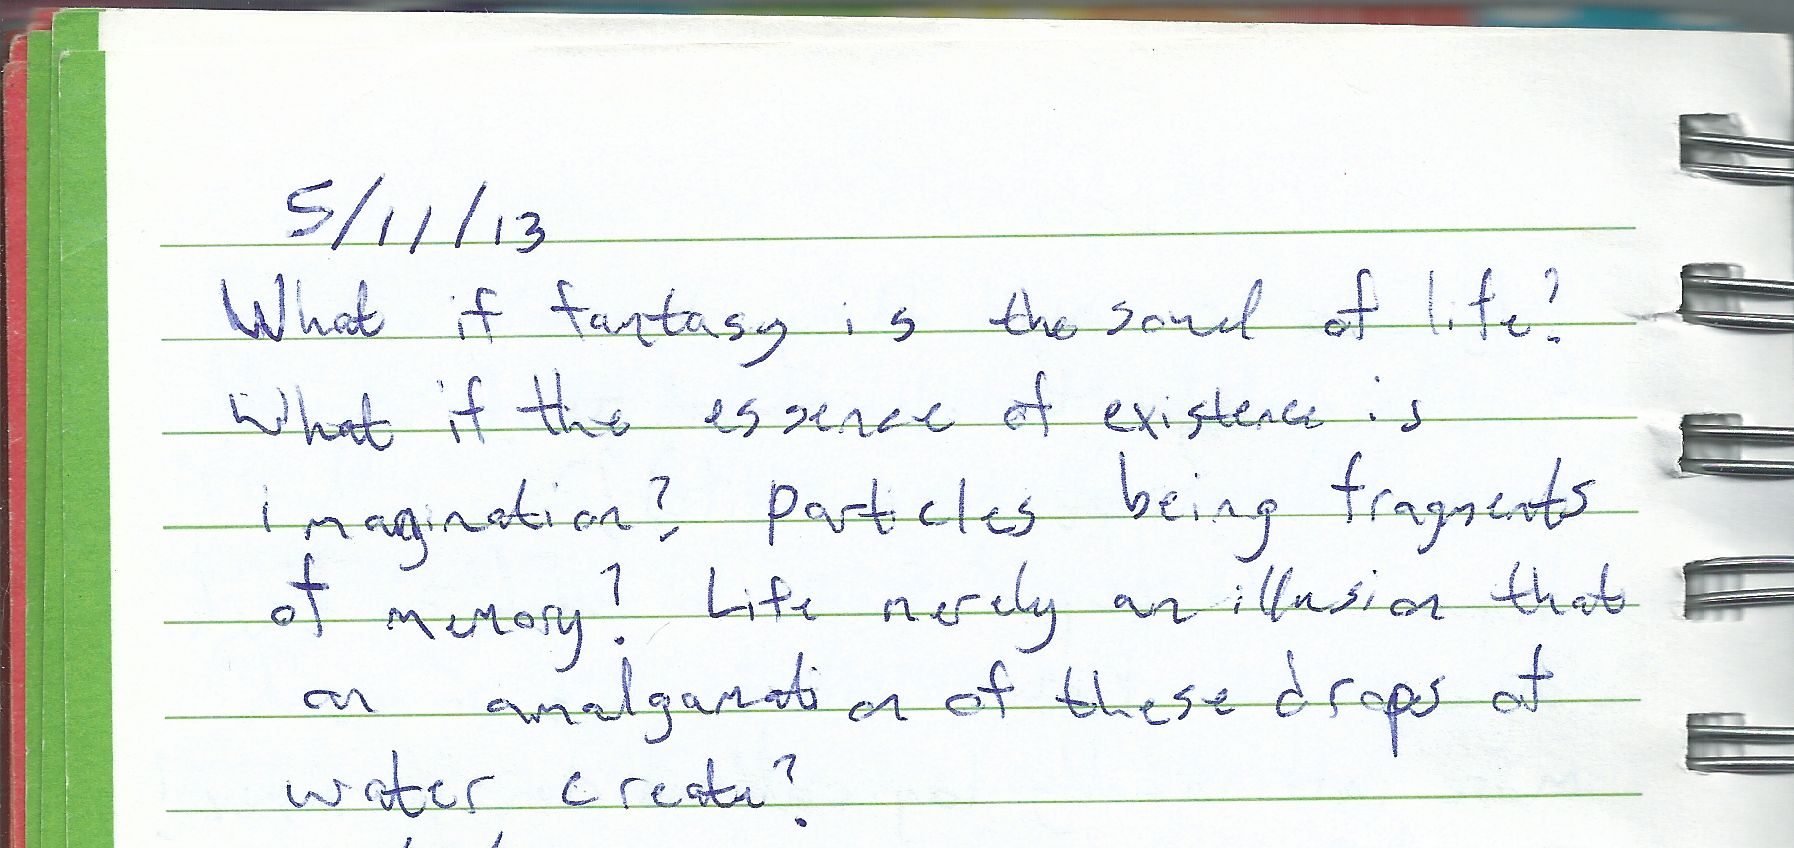 5/11/13
What if fantasy is the sand of life?
What if the essence of existence is
imagination? Particles being fragments
of memory? Life merely an illusion that
an amalgamation of these drops of
water create?